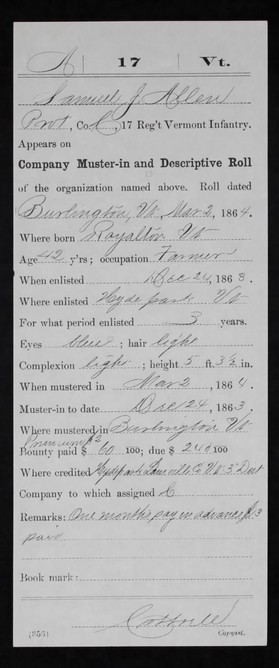 A | 17 | Vt.
Samuel J. Allen
Pvt., Co. C, 17 Reg't Vermont Infantry.
Appears on
Company Muster-in and Descriptive Roll
of the organization named above. Roll dated
Burlington, Vt Mar 2, 1864.
Where born Royalton Vt
Age 42 y'rs; occupation Farmer
When enlisted Dec 24, 1863.
Where enlisted Hyde park Vt
For what period enlisted 3 years.
Eyes blue; hair light
Complexion light; height 5 ft. 3½ in.
When mustered in Mar 2, 1864.
Muster-in to date Dec 24, 1863.
Where mustered in Burlington Vt
Premium $2
Bounty paid $ 60 100; due $ 240 100
Where credited Hydepark Lamoille Co Vt 3" Dist
Company to which assigned C
Remarks: One months pay in advance $13
paid
Book mark:
(356) Copyist.